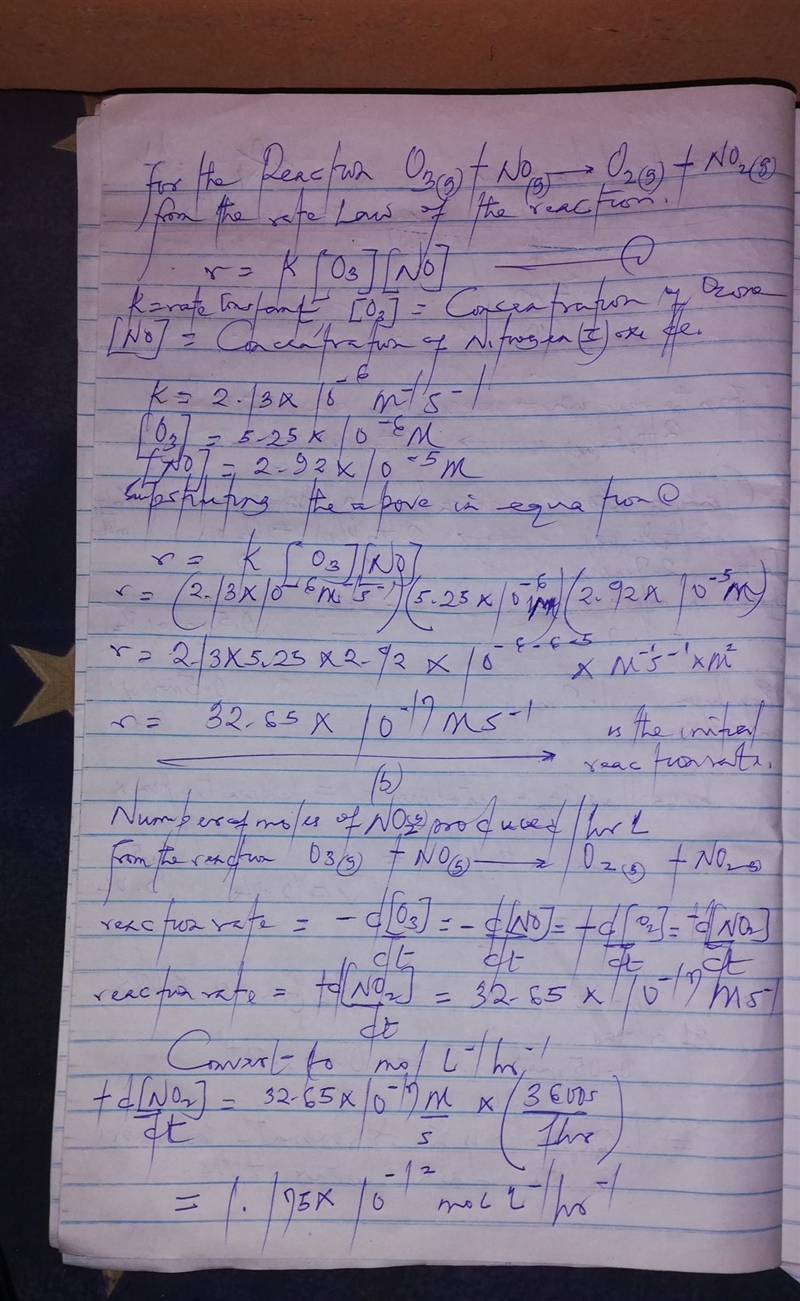 For the Reaction O3(g) + NO(g) → O2(g) + NO2(g)
from the rate Law of the reaction.
r = K [O3][NO] ——— ①
K = rate Constant [O3] = Concentration of Ozone
[NO] = Concentration of Nitrogen(II) oxide.
K = 2.13 x 10^-6 m^-1 s^-1
[O3] = 5.25 x 10^-6 M
[NO] = 2.92 x 10^-5 M
Substituting the above in equation ①
r = K [O3][NO]
r = (2.13 x 10^-6 M^-1 s^-1)(5.25 x 10^-6 M)(2.92 x 10^-5 M)
r = 2.13 x 5.25 x 2.92 x 10^-6-6-5 x M^-1 s^-1 x M^2
r = 32.65 x 10^-17 M s^-1 is the initial
reaction rate.
(b)
Number of moles of NO2(g) produced /hr L
From the reaction O3(g) + NO(g) → O2(g) + NO2(g)
reaction rate = -d[O3]/dt = -d[NO]/dt = +d[O2]/dt = +d[NO2]/dt
reaction rate = +d[NO2]/dt = 32.65 x 10^-17 M s^-1
Convert to mol L^-1 hr^-1
+d[NO2]/dt = 32.65 x 10^-17 M/s x (3600s/1hr)
= 1.175 x 10^-12 mol L^-1 hr^-1